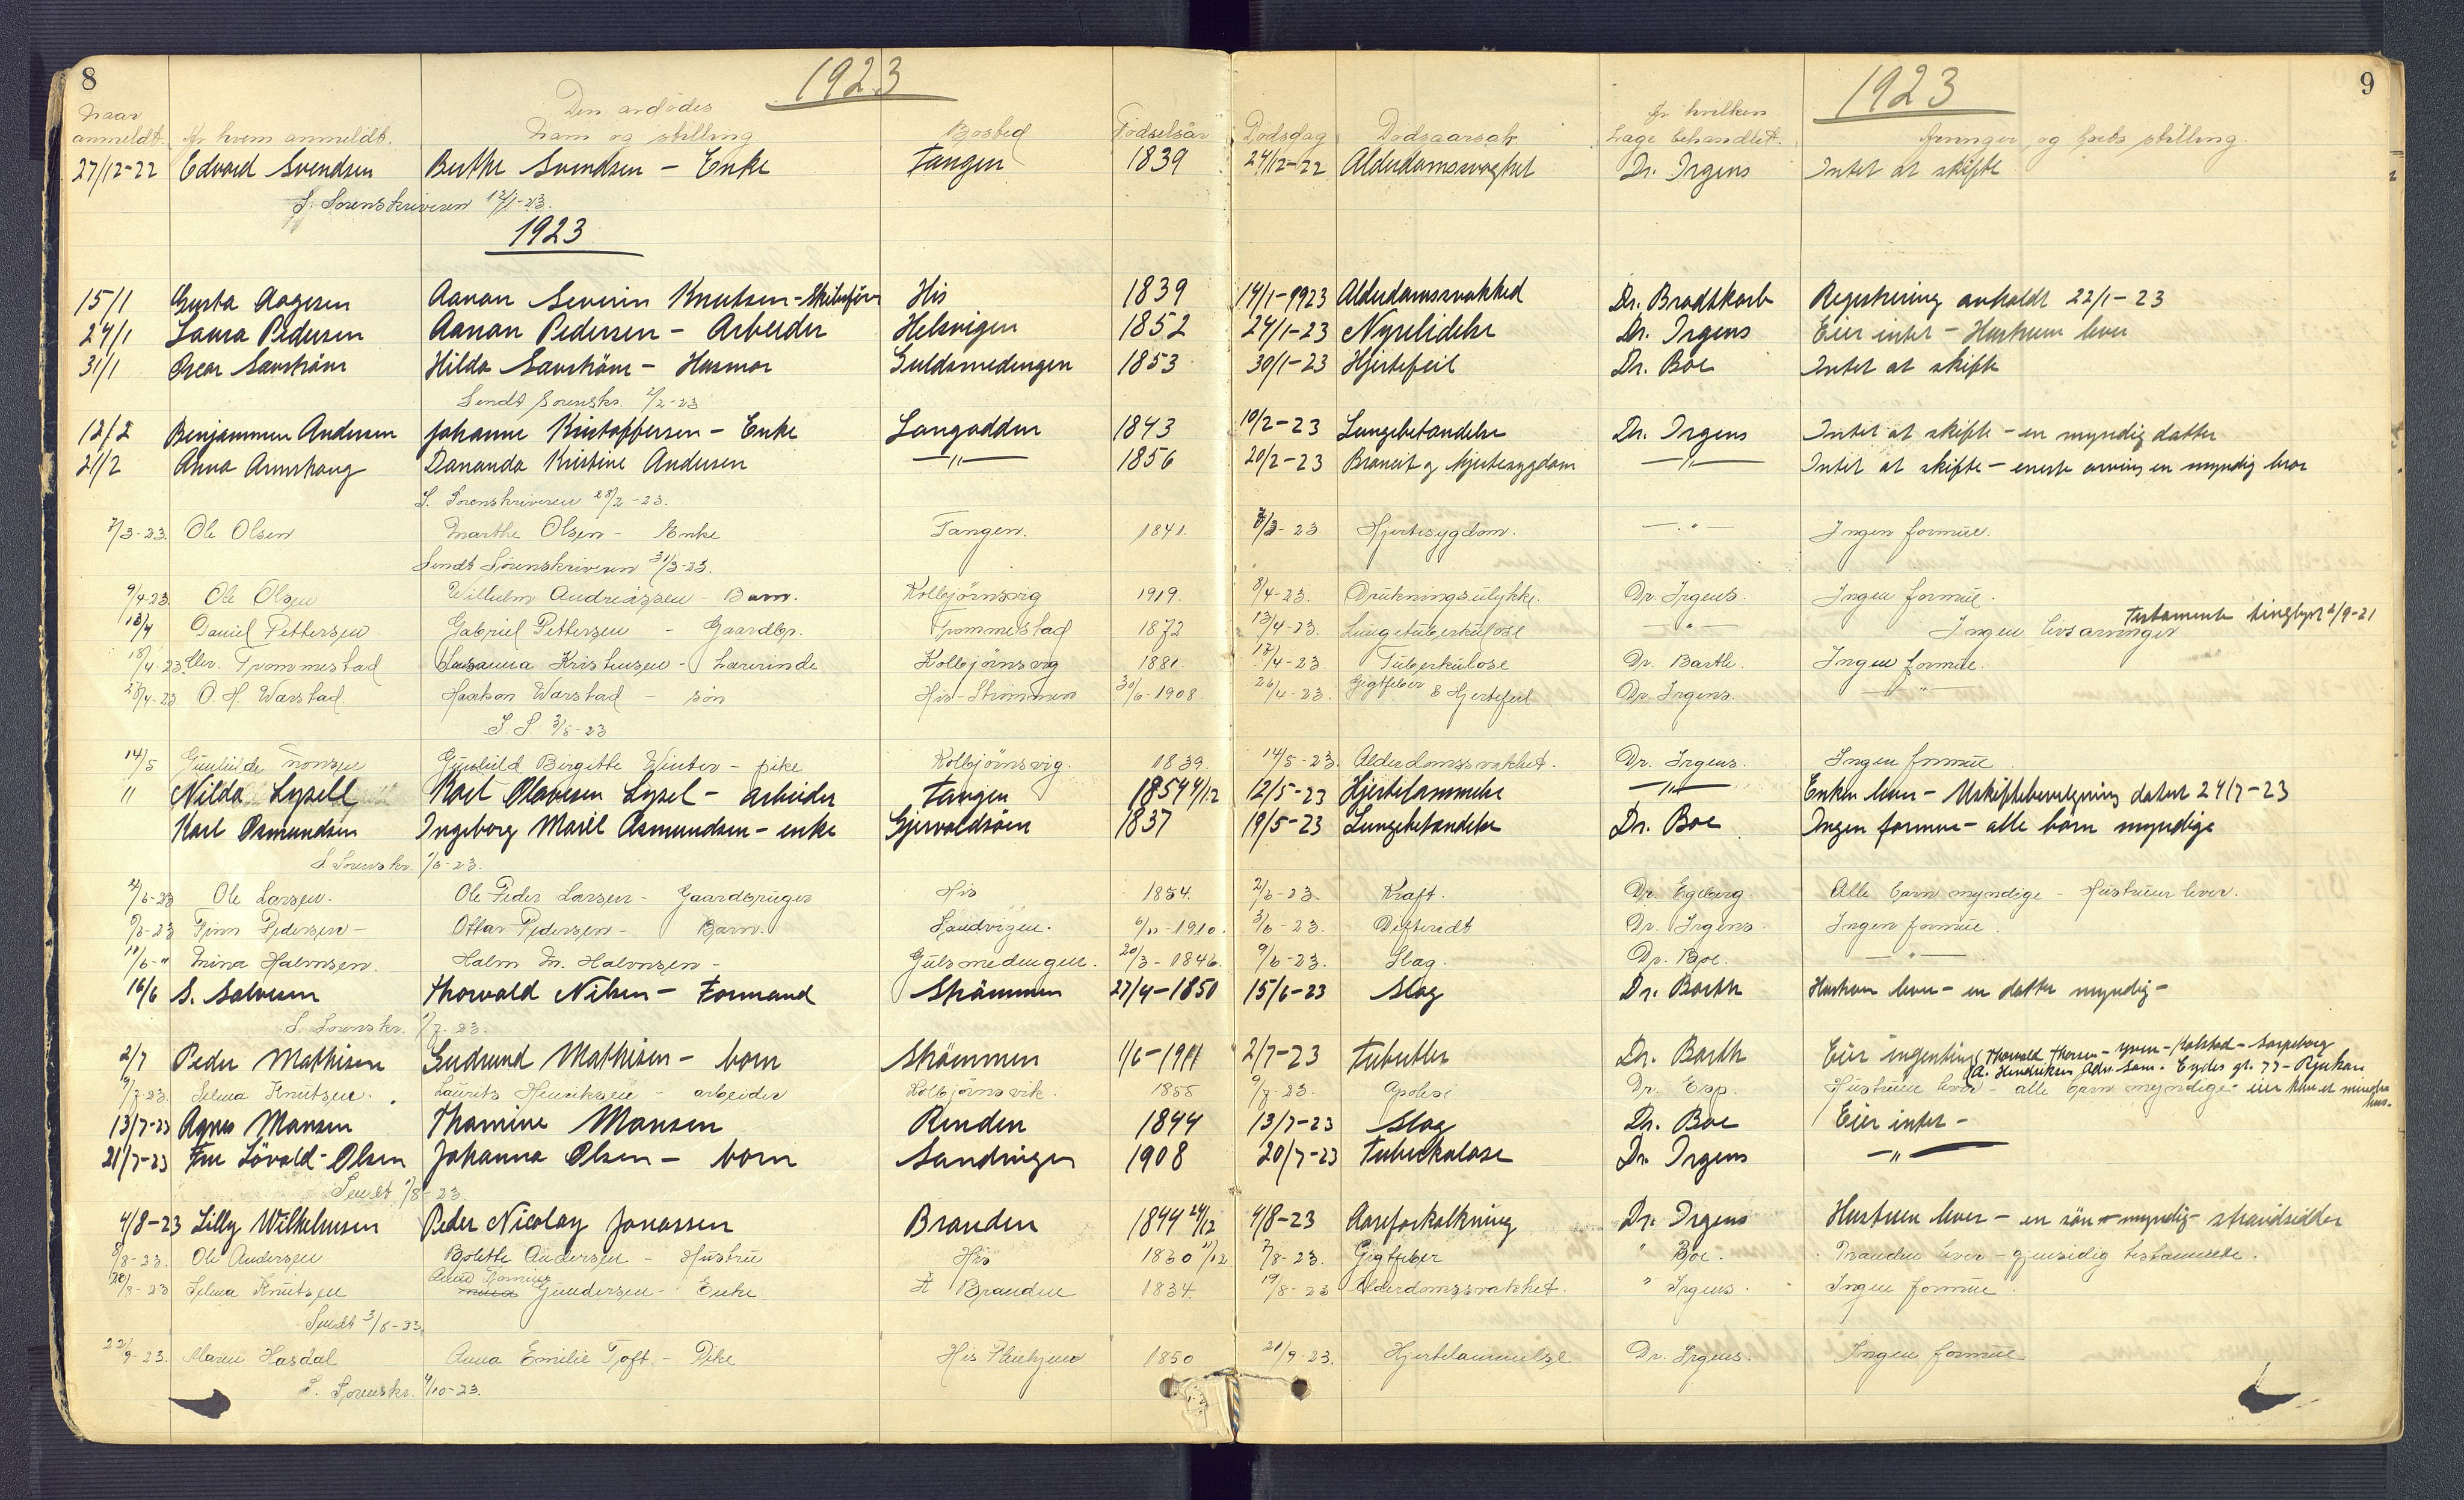 8
1923
1923
9
Naar anmeldt. Af hvem anmeldt. Den avdødes navn og stilling Bosted Fødselsår Dødsdag Dødsaarsak Av hvilken Læge behandlet. Arvinger, og boets stilling.
27/12-22 Edvard Svendsen Berthe Svendsen - Enke Tangen 1839 24/12-22 Alderdomssvaghet Dr. Irgens Intet at skifte
S. Sorenskriveren 12/1-23.
1923
15/1 Gusta Aagesen Aanon Severin Knutsen - Skibsfører His 1839 14/1-1923 Alderdomssvakhed Dr. Brodtkorb Registrering avholdt 22/1-23
24/1 Laura Pedersen Aanon Pedersen - Arbeider Helsvigen 1852 24/1-23 Nyrelidelse Dr. Irgens Eier intet - Hustruen lever
31/1 Oscar Savström Hilda Savström - Husmor Guldsmedengen 1853 30/1-23 Hjertefeil Dr. Boe Intet at skifte
Sendt Sorenskr. 2/2-23
12/2 Benjammen Andersen Johanne Kristoffersen - Enke Langodden 1843 10/2-23 Lungebetændelse Dr. Irgens Intet at skifte - en myndig datter
21/2 Anna Arnshaug Dananda Kristine Andersen -"- 1856 20/2-23 Broncit og hjertesygdom -"- Intet at skifte - eneste arving en myndig bror
S. Sorenskriveren 28/2-23.
7/3-23. Ole Olsen Marthe Olsen - Enke Tangen. 1841. 3/3-23. Hjertesygdom. -"- Ingen formue.
Sendt Sorenskriveren 31/3-23.
9/4-23. Ole Olsen Wilhelm Andreassen - Barn. Kolbjörnsvig 1919. 8/4-23. Drukningsulykke. Dr. Irgens. Ingen formue.
13/4 Daniel Pettersen Gabriel Pettersen - Gaardbr. Trommestad 1872 13/4-23. Lungetuberkulose -"- Ingen livsarvinger Testamente tinglyst 2/9-21
18/4-23 Trommestad Susanna Kristensen - Lærerinde Kolbjörnsvig 1881. 17/4-23. Tuberkulose Dr. Barth. Ingen formue.
28/4-23 O. H. Warstad. Haakon Warstad - sön His - Strömmen 30/6-1908. 26/4-23. Gigtfeber & Hjertefeil Dr. Irgens. -"-
S. S. 3/5-23
14/5 Gunhilde Monsen Gunhild Birgitte Winter - pike Kolbjörnsvig. 1839. 14/5-23. Alderdomssvakhet. Dr. Irgens. Ingen formue
" Nilda Lysell Karl Olavesen Lysel - arbeider Tangen 1854 4/12 12/5-23 Hjertelammelse -"- Enken lever - Uskiftebevilgning datert 24/7-23
Karl Osmundsen Ingeborg Marie Osmundsen - enke Gjervoldsöen 1837 19/5-23 Lungebetændelse Dr. Boe Ingen formue - alle børn myndige
S. Sorenskr. 1/6-23.
2/6-23 Ole Larsen. Ole Peder Larsen - Gaardbruger His 1854. 2/6-23. Kræft. Dr. Egeberg. Alle barn myndige - Hustruen lever.
5/6-23 Finn Pedersen - Ottar Pedersen - Barn. Sandvigen. 6/11-1910. 3/6-23. Difteridt Dr. Irgens. Ingen formue.
10/6-" Mina Halvorsen. Halvor M. Halvorsen - Gulsmedengen. 20/3-1846. 9/6-23. Slag. Dr. Boe. -"-
16/6 S. Salvesen Thorvald Nilsen - Formand Strömmen 27/4-1850 15/6-23 Slag Dr. Barth Hustruen lever - en datter myndig -
S. Sorenskr. 1/7-23.
2/7 Peder Mathisen Gudrund Mathisen - barn Strömmen 1/6-1911 2/7-23 Tuberkler Dr. Barth Eier ingenting
9/7-23. Selma Knutsen. Laurits Henriksen - arbeider Kolbjörnsvik. 1855 9/7-23. Apoleksi Dr. Esp. Hustruen lever - alle barn myndige - eier kun et mindre hus.
13/7-23 Agnes Monsen Thomine Monsen Renden 1844 13/7-23 Slag Dr. Boe Eier intet -
21/7-23 Fru Lövold-Olsen Johanna Olsen - barn Sandvigen 1908 20/7-23 Tuberkulose Dr. Irgens -"-
Sendt 1/8-23.
4/8-23 Lilly Wilhelmsen Peder Nicolay Jonassen Branden 1844 24/12 4/8-23 Aareforkalkning Dr. Irgens Hustruen lever - en sön myndig - strandsidder
8/8-23. Ole Andersen Bolette Andersen - Hustru His 1830 11/12 7/8-23. Gigtfeber " Boe. Manden lever - gjensidig testamente.
20/8-23 Selma Knutsen Gundersen - Enke Branden 1834. 19/8-23 Alderdomssvakhet. " Irgens. Ingen formue.
Sendt 31/8-23.
22/9-23. Maren Hasdal Anna Emilie Toft. - Pike His Pleiehjem 1850 21/9-23. Hjertelammelse Dr. Irgens. Ingen formue
S. Sorenskr. 4/10-23.